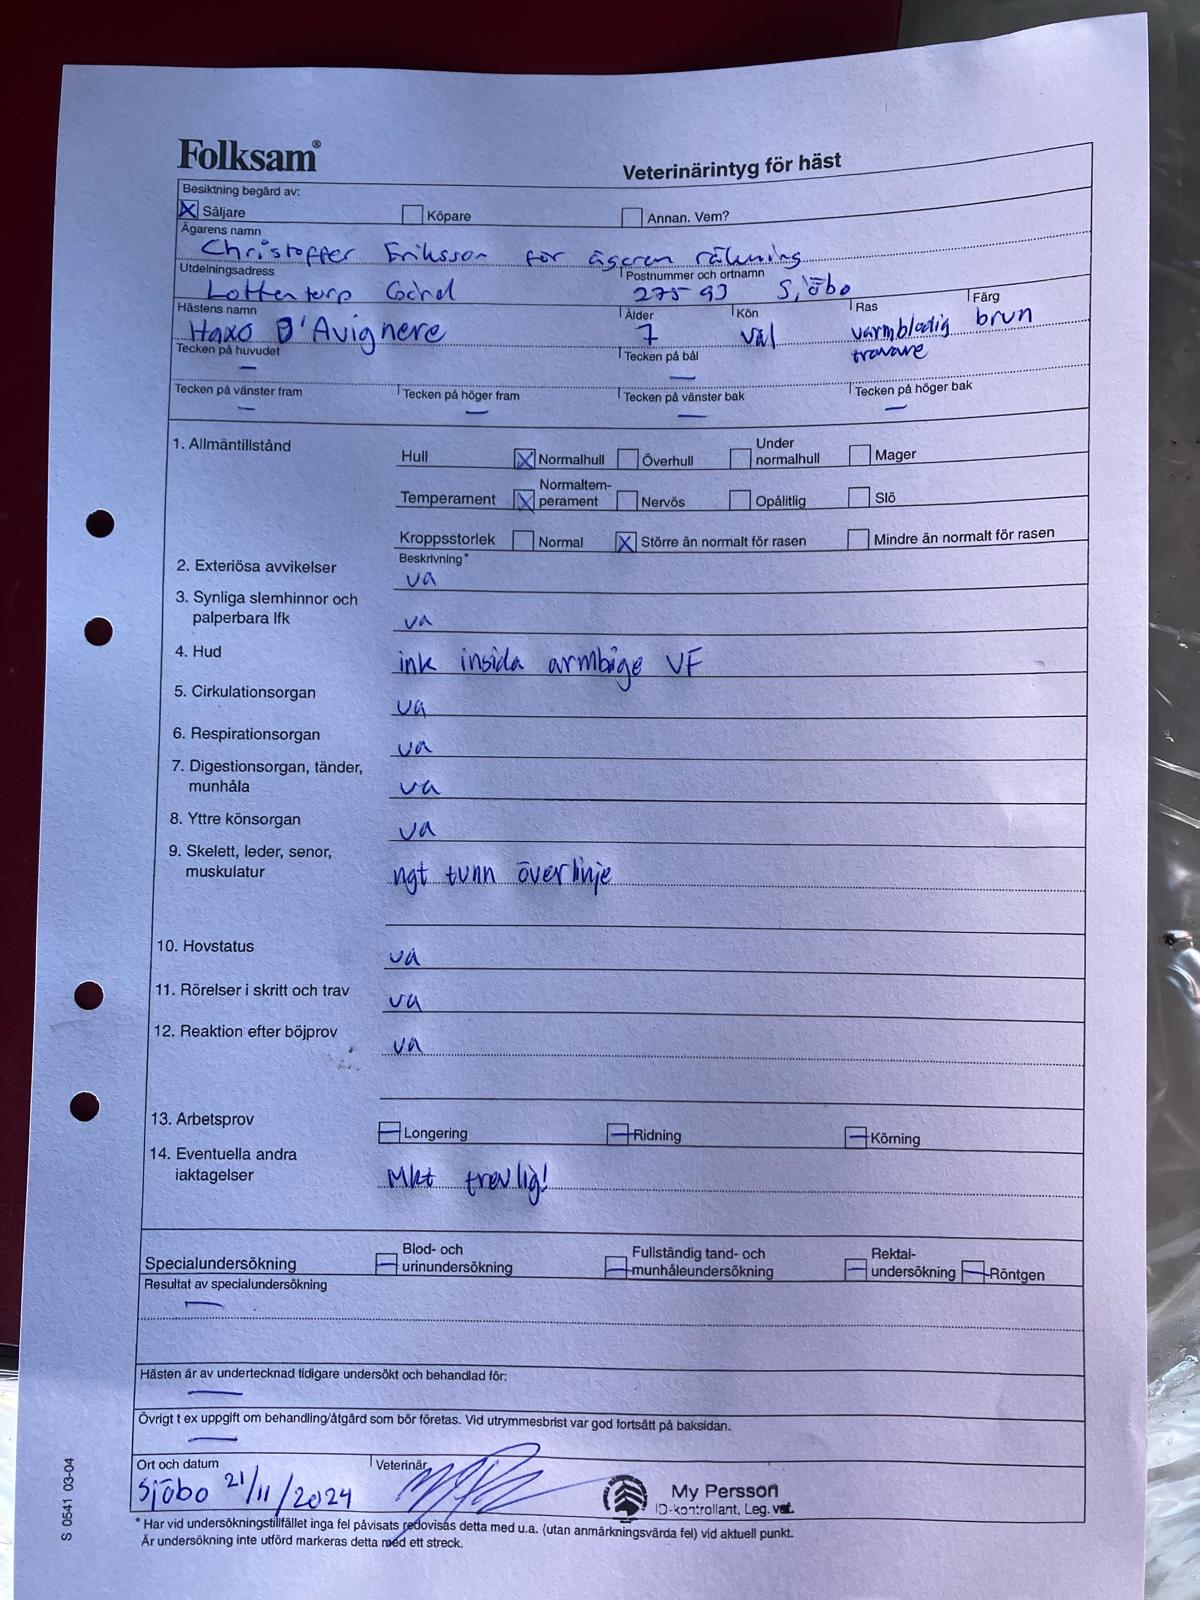 Folksam®
Veterinärintyg för häst
Besiktning begärd av:
Säljare Köpare Annan. Vem?
Ägarens namn
Christoffer Eriksson för ägaren räkning
Utdelningsadress Postnummer och ortnamn
Lottentorp Gård 275 93 Sjöbo
Hästens namn Ålder Kön Ras Färg
Haxo D'Avignere 7 val varmblodig travare brun
Tecken på huvudet Tecken på bål
— —
Tecken på vänster fram Tecken på höger fram Tecken på vänster bak Tecken på höger bak
— — — —
1. Allmäntillstånd
Hull Normalhull Överhull Under normalhull Mager
Temperament Normaltem-perament Nervös Opålitlig Slö
Kroppsstorlek Normal Större än normalt för rasen Mindre än normalt för rasen
Beskrivning*
2. Exteriösa avvikelser ua
3. Synliga slemhinnor och
palperbara lfk ua
4. Hud ink insida armbåge VF
5. Cirkulationsorgan ua
6. Respirationsorgan ua
7. Digestionsorgan, tänder,
munhåla ua
8. Yttre könsorgan ua
9. Skelett, leder, senor,
muskulatur ngt tunn överlinje
10. Hovstatus ua
11. Rörelser i skritt och trav ua
12. Reaktion efter böjprov ua
13. Arbetsprov Longering Ridning Körning
14. Eventuella andra
iaktagelser Mkt trevlig!
Specialundersökning Blod- och urinundersökning Fullständig tand- och munhåleundersökning Rektal-undersökning Röntgen
Resultat av specialundersökning
—
Hästen är av undertecknad tidigare undersökt och behandlad för:
—
Övrigt t ex uppgift om behandling/åtgärd som bör företas. Vid utrymmesbrist var god fortsätt på baksidan.
—
Ort och datum Veterinär
Sjöbo 21/11/2024
My Persson
ID-kontrollant, Leg. vet.
* Har vid undersökningstillfället inga fel påvisats redovisas detta med u.a. (utan anmärkningsvärda fel) vid aktuell punkt.
Är undersökning inte utförd markeras detta med ett streck.
S 0541 03-04